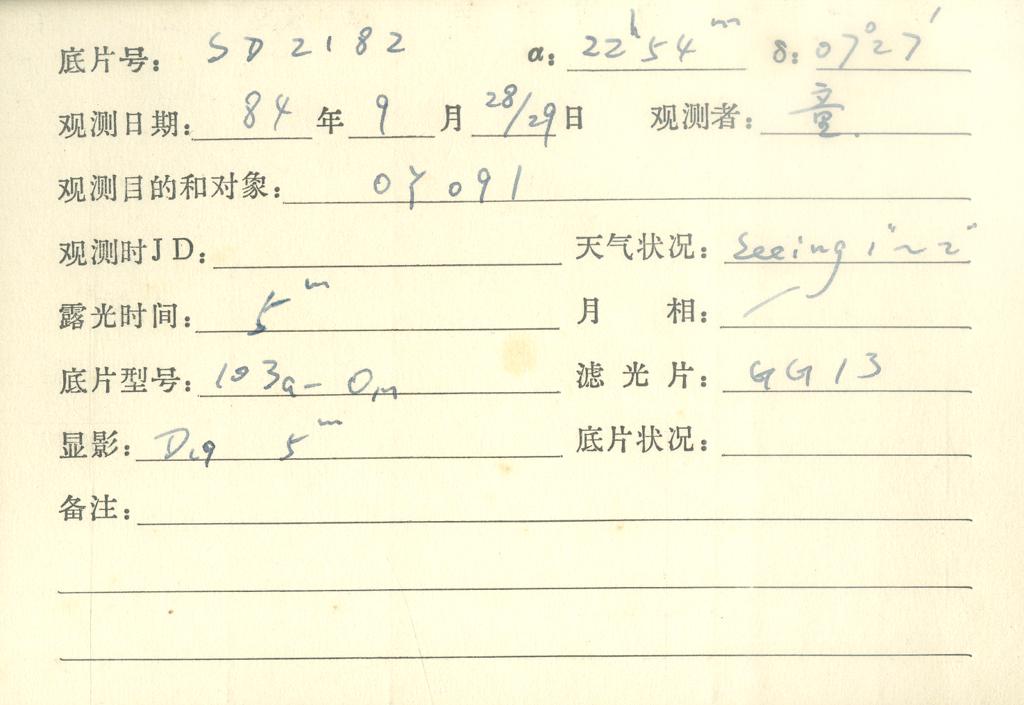 底片号： SD2182 α： 22ʰ54ᵐ δ： 07°27′
观测日期： 84 年 9 月 28/29 日 观测者： 童
观测目的和对象： OY 091
观测时JD： 天气状况： Seeing 1"~2"
露光时间： 5ᵐ 月 相： /
底片型号： 103a-O 滤光片： GG13
显影： D19 5ᵐ 底片状况：
备注：